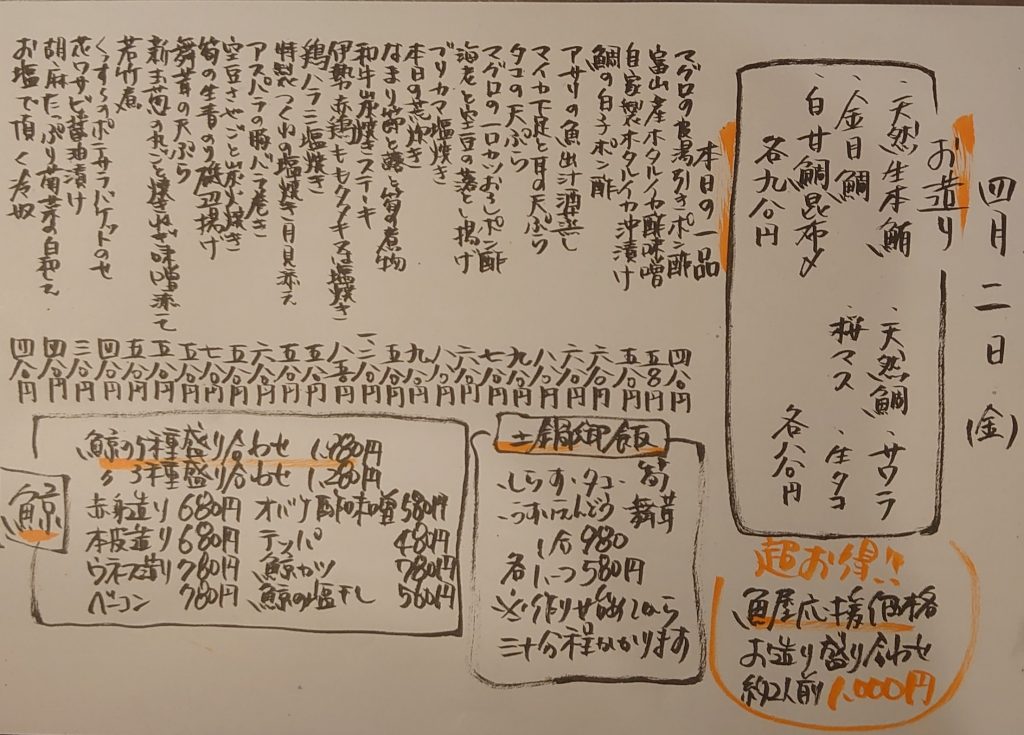 四月二日(金)
お造り
・天然生本鮪
・金目鯛
・白甘鯛昆布〆
各九八〇円
・天然鯛・サワラ
・桜マス・生タコ
各八八〇円
本日の一品
マグロの皮湯引きポン酢 四八〇円
富山産ホタルイカ酢味噌 五八〇円
自家製ホタルイカ沖漬け 五八〇円
鯛の白子ポン酢 六八〇円
アサリの魚出汁酒蒸し 六八〇円
マイカ下足と耳の天ぷら 八八〇円
タコの天ぷら 九八〇円
マグロの一口カツおろしポン酢 七八〇円
海老と空豆の落とし揚げ 六八〇円
ブリカマ塩焼き 八八〇円
本日の荒炊き 九八〇円
なまり節と蕗と筍の煮物 五八〇円
和牛炭焼きステーキ 一、二八〇円
伊勢赤鶏ももクアキス塩焼き 八八〇円
鶏ハラミ塩焼き 五八〇円
特製つくねの塩焼き月見添え 五八〇円
アスパラの豚バラ巻き 六八〇円
空豆さやごと炭火焼き 五八〇円
筍の生青のり磯辺揚げ 七八〇円
舞茸の天ぷら 五八〇円
新玉葱丸ごと煙焼ねぎ味噌添え 五八〇円
若竹煮 五八〇円
くんすらのポテサラバゲットのせ 四八〇円
花ワサビ醤油漬け 三八〇円
胡麻たっぷり菊菜の白和え 四八〇円
お塩で頂く冷奴 四八〇円
土鍋御飯
・しらす・タコ・筍
・うすいえんどう 舞茸
1合 980
各 ハーフ 580円
※作り始めてから
三十分程かかります
鯨
鯨の5種盛り合わせ 1,980円
〃 3種盛り合わせ 1,280円
赤身造り 680円 オバケ酢味噌 580円
本皮造り 680円 テッパ 480円
ウネス造り 780円 鯨カツ 780円
ベーコン 780円 鯨の塩干し 560円
超お得!!
魚屋応援価格
お造り盛り合わせ
約2人前 1,000円